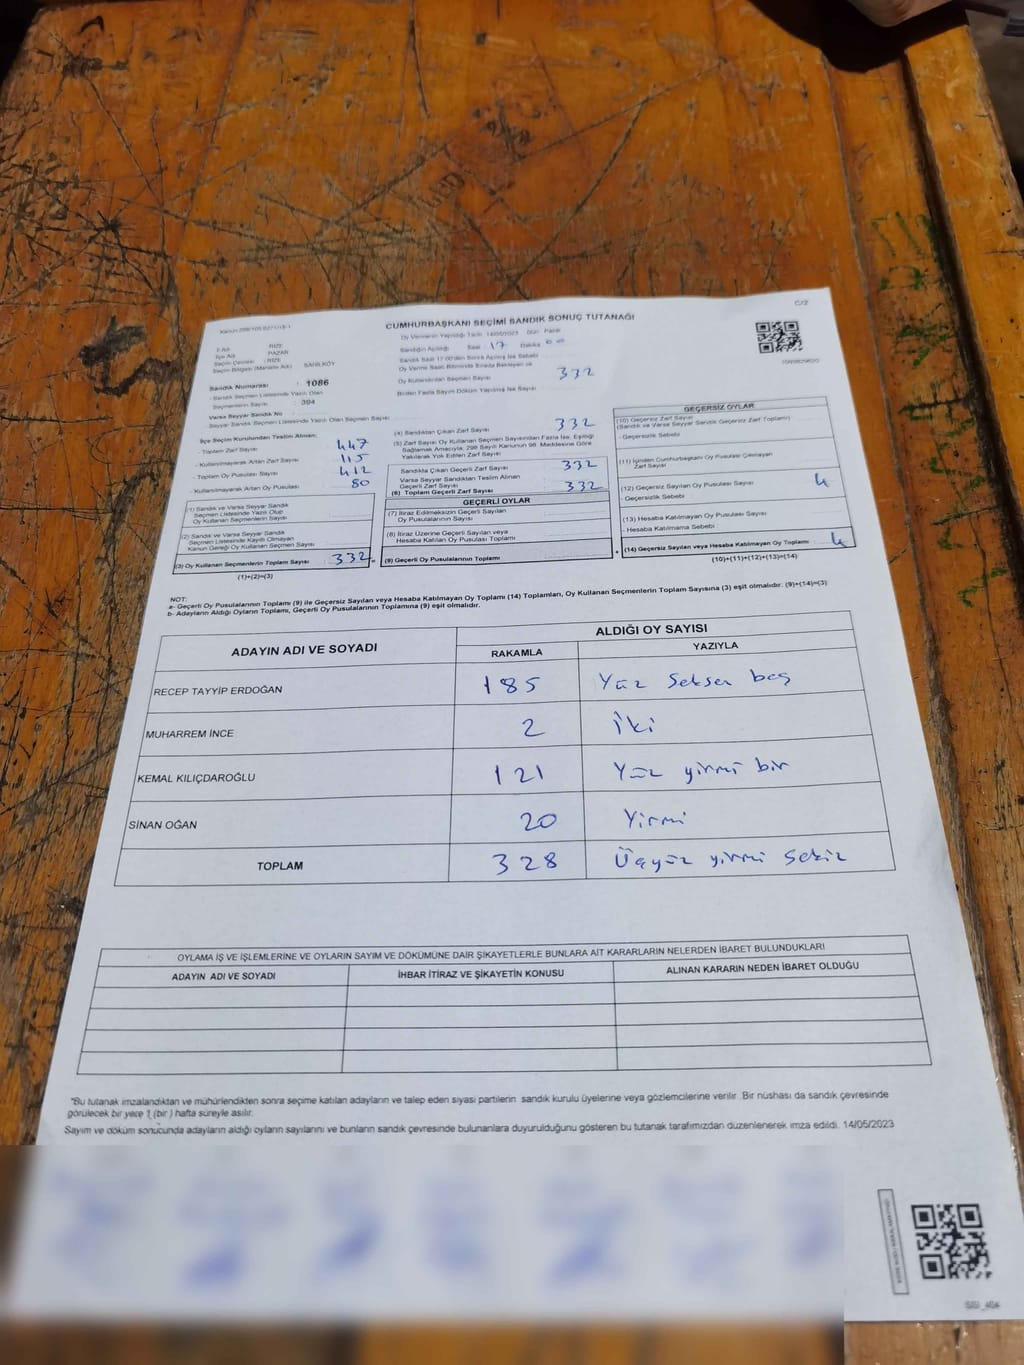 C/2
CUMHURBAŞKANI SEÇİMİ SANDIK SONUÇ TUTANAĞI
Oy Vermenin Yapıldığı Tarih: 14/05/2023 Gün: Pazar
Sandığın Açılışı Saat: 17 Dakika
İl Adı : RİZE
İlçe Adı : PAZAR
Seçim Çevresi : RİZE
Seçim Bölgesi (Mahalle Adı) : SAHİLKÖY
Oy Kullandırılan Seçmen Sayısı 332
Sandık Numarası : 1086
- Sandık Seçmen Listesinde Yazılı Olan
Seçmenlerin Sayısı : 394
Birden Fazla Sayım Döküm Yapılmış İse Sayısı
Varsa Seyyar Sandık No
- Seyyar Sandık Seçmen Listesinde Yazılı Olan Seçmen Sayısı
İlçe Seçim Kurulundan Teslim Alınan;
- Toplam Zarf Sayısı 447
- Kullanılmayarak Artan Zarf Sayısı 115
- Toplam Oy Pusulası Sayısı 412
- Kullanılmayarak Artan Oy Pusulası 80
(1) Sandık ve Varsa Seyyar Sandık
Seçmen Listesinde Yazılı Olup
Oy Kullanan Seçmenlerin Sayısı
(2) Sandık ve Varsa Seyyar Sandık
Seçmen Listesinde Kayıtlı Olmayan
Kanun Gereği Oy Kullanan Seçmen Sayısı
(3) Oy Kullanan Seçmenlerin Toplam Sayısı : 332 =
(1)+(2)=(3)
(4) Sandıktan Çıkan Zarf Sayısı 332
(5) Zarf Sayısı Oy Kullanan Seçmen Sayısından Fazla İse, Eşitliği
Sağlamak Amacıyla; 298 Sayılı Kanunun 98. Maddesine Göre
Yakılarak Yok Edilen Zarf Sayısı
Sandıkta Çıkan Geçerli Zarf Sayısı 332
Varsa Seyyar Sandıktan Teslim Alınan
Geçerli Zarf Sayısı
(6) Toplam Geçerli Zarf Sayısı 332
GEÇERLİ OYLAR
(7) İtiraz Edilmeksizin Geçerli Sayılan
Oy Pusulalarının Sayısı
(8) İtiraz Üzerine Geçerli Sayılan veya
Hesaba Katılan Oy Pusulası Toplamı
(9) Geçerli Oy Pusulalarının Toplamı +
GEÇERSİZ OYLAR
(10) Geçersiz Zarf Sayısı
(Sandık ve Varsa Seyyar Sandık Geçersiz Zarf Toplamı)
- Geçersizlik Sebebi
(11) İçinden Cumhurbaşkanı Oy Pusulası Çıkmayan
Zarf Sayısı
(12) Geçersiz Sayılan Oy Pusulası Sayısı 4
- Geçersizlik Sebebi
(13) Hesaba Katılmayan Oy Pusulası Sayısı
- Hesaba Katılmama Sebebi :
(14) Geçersiz Sayılan veya Hesaba Katılmayan Oy Toplamı : 4
(10)+(11)+(12)+(13)=(14)
NOT:
a- Geçerli Oy Pusulalarının Toplamı (9) ile Geçersiz Sayılan veya Hesaba Katılmayan Oy Toplamı (14) Toplamları, Oy Kullanan Seçmenlerin Toplam Sayısına (3) eşit olmalıdır. (9)+(14)=(3)
b- Adayların Aldığı Oyların Toplamı, Geçerli Oy Pusulalarının Toplamına (9) eşit olmalıdır.
ADAYIN ADI VE SOYADI
ALDIĞI OY SAYISI
RAKAMLA YAZIYLA
RECEP TAYYİP ERDOĞAN 185 Yüz Seksen beş
MUHARREM İNCE 2 İki
KEMAL KILIÇDAROĞLU 121 Yüz yirmi bir
SİNAN OĞAN 20 Yirmi
TOPLAM 328 Üçyüz yirmi sekiz
OYLAMA İŞ VE İŞLEMLERİNE VE OYLARIN SAYIM VE DÖKÜMÜNE DAİR ŞİKAYETLERLE BUNLARA AİT KARARLARIN NELERDEN İBARET BULUNDUKLARI
ADAYIN ADI VE SOYADI İHBAR İTİRAZ VE ŞİKAYETİN KONUSU ALINAN KARARIN NEDEN İBARET OLDUĞU
"Bu tutanak imzalandıktan ve mühürlendikten sonra seçime katılan adayların ve talep eden siyasi partilerin sandık kurulu üyelerine veya gözlemcilerine verilir. Bir nüshası da sandık çevresinde
görülecek bir yere 1 (bir ) hafta süreyle asılır.
Sayım ve döküm sonucunda adayların aldığı oyların sayılarını ve bunların sandık çevresinde bulunanlara duyurulduğunu gösteren bu tutanak tarafımızdan düzenlenerek imza edildi. 14/05/2023